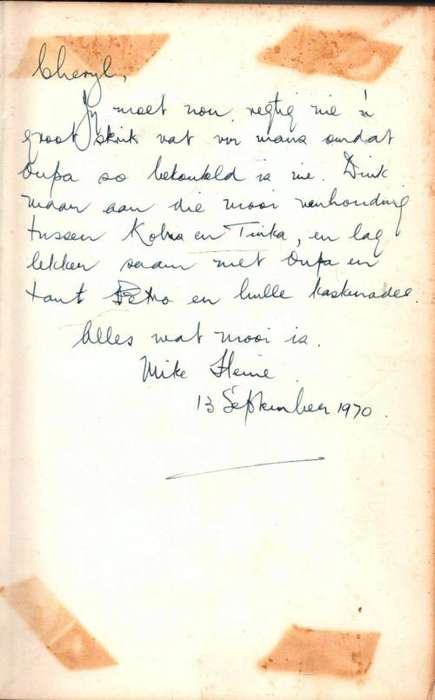 Cheryl,
Jy moet nou regtig nie 'n
groot skrik vat vir mans omdat
Oupa so bekonkeld is nie. Dink
maar aan die mooi verhouding
tussen Kobus en Tinka, en lag
lekker saam met Oupa en
tant Petro en hulle kaskenades.
Alles wat mooi is.
Mike Heine
13 September 1970.